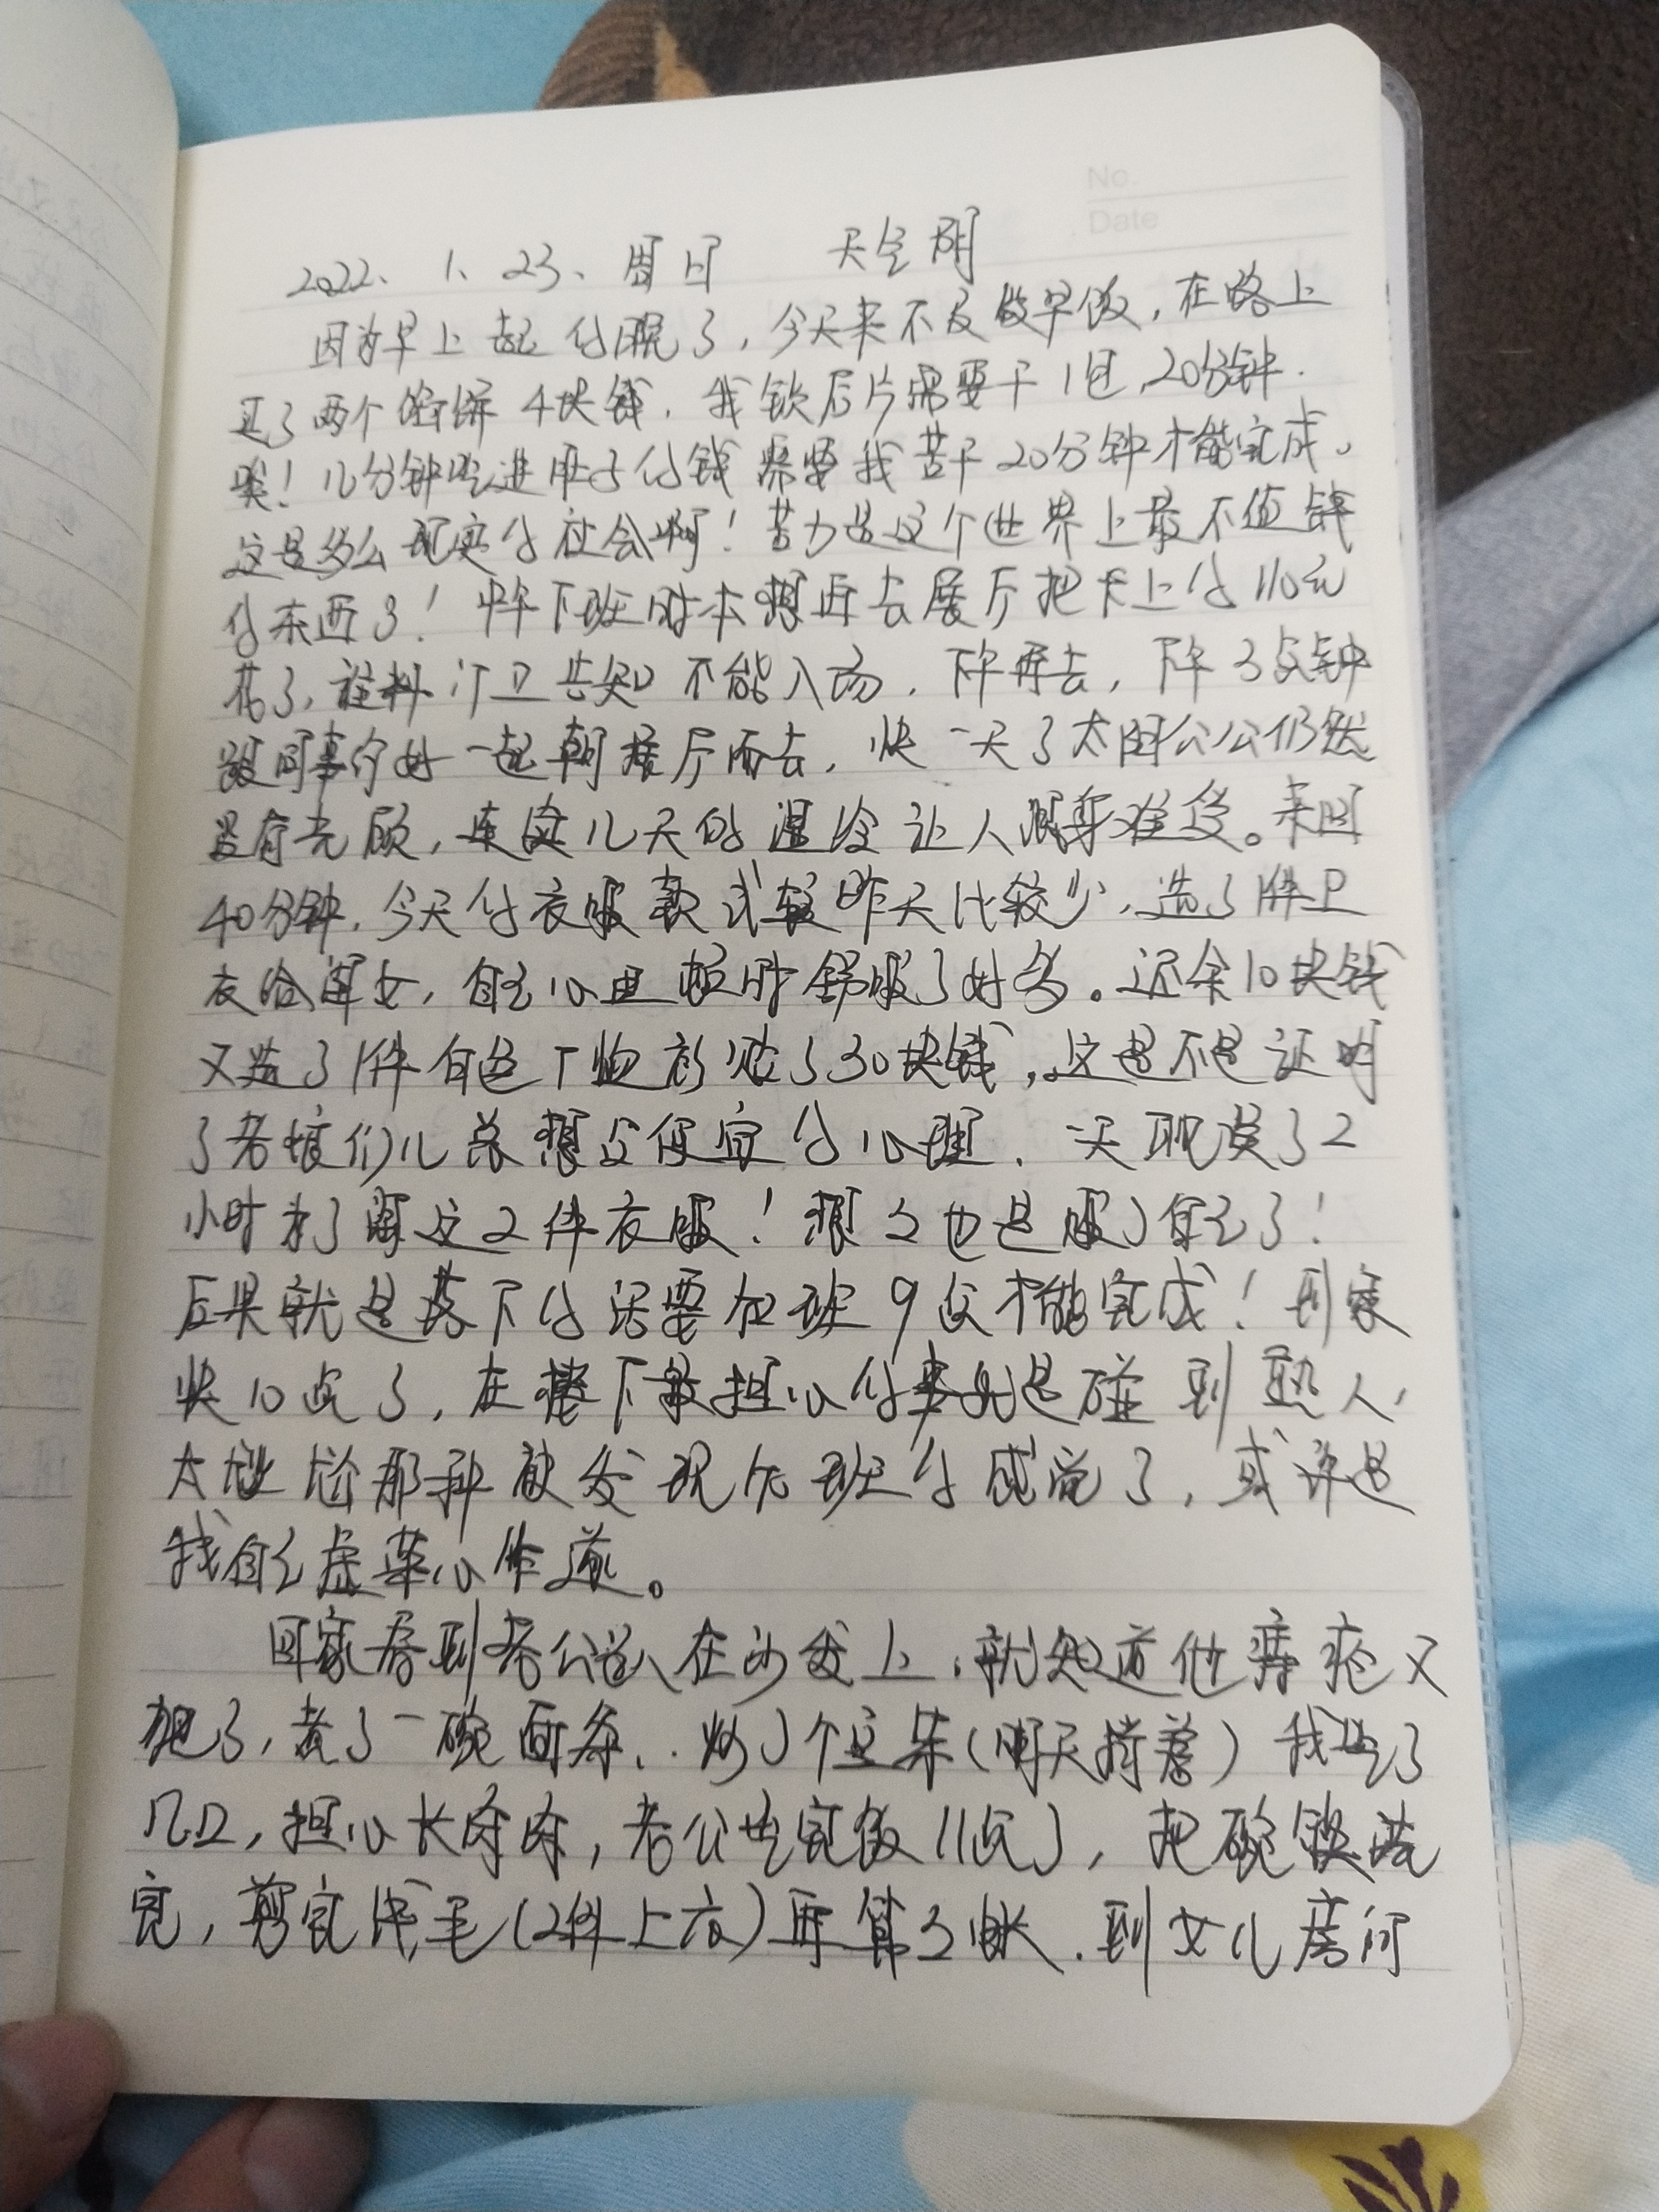 No.
Date
2022、1、23、周日 天气阴
因为早上起的晚了，今天来不及做早饭，在路上
买了两个馅饼4块钱，我锁后片需要干1包，20分钟.
唉！几分钟吃进肚子的钱需要我苦干20分钟才能完成。
这是多么现实的社会啊！苦力是这个世界上最不值钱
的东西了！中午下班时本想再去展厅把卡上的110元
花了，谁料门卫告知不能入场，下午再去，下午3点钟
跟同事约好一起朝展厅而去，快一天了太阳公公仍然
没有光顾，连续几天的湿冷让人浑身难受。来回
40分钟，今天的衣服款式较昨天比较少，选了1件卫
衣给闺女，自己心里顿时舒服了好多。还余10块钱
又选了1件白色T恤衫贴了30块钱，这是不是证明
了老娘们儿总想占便宜的心理，一天耽误了2
小时为了买这2件衣服！想想也是服了自己了！
后果就是落下的活要加班9点才能完成！到家
快10点了，在楼下最担心的事儿是碰到熟人，
太尴尬那种被发现加班的感觉了，或许是
我自己虚荣心作祟。
回家看到老公躺在沙发上，就知道他痔疮又
犯了，煮了一碗面条，炒了个豆角(明天捎着)我吃了
几口，担心长肉肉，老公吃完饭11点了，把碗筷洗
完，剪完线毛(2件上衣)再算了账，到女儿房间